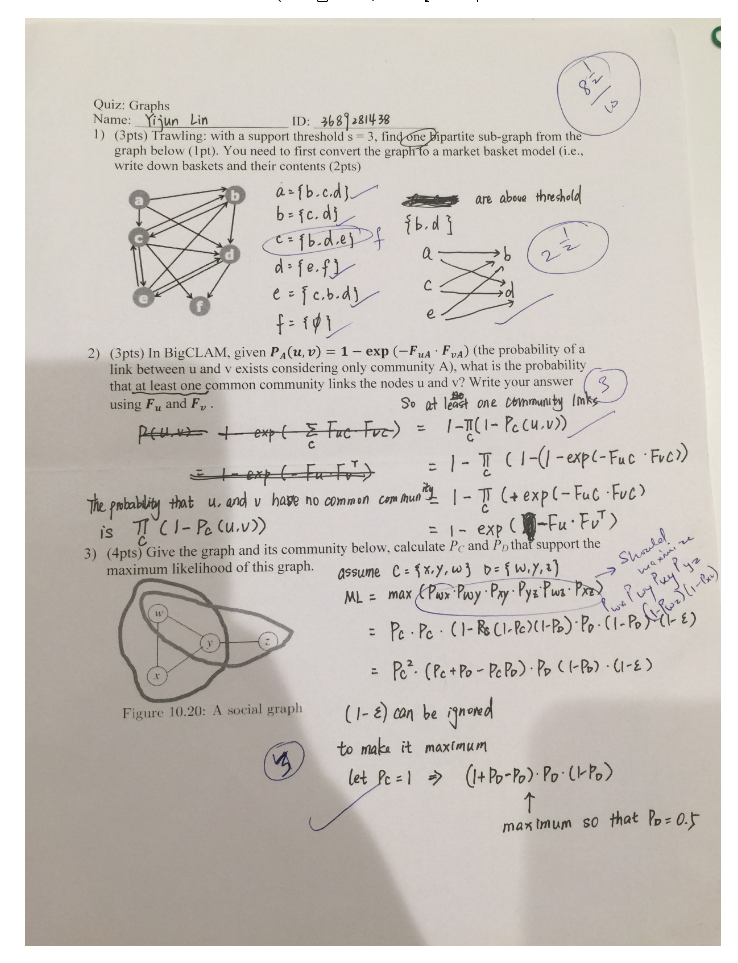 8 1/2 / 10
Quiz: Graphs
Name: Yijun Lin ID: 3689281438
1) (3pts) Trawling: with a support threshold s = 3, find one bipartite sub-graph from the
graph below (1pt). You need to first convert the graph to a market basket model (i.e.,
write down baskets and their contents (2pts)
a b c d e f
a = {b.c.d}
b = {c.d}
c = {b.d.e} f
d = {e.f}
e = {c.b.d}
f = {∅}
are above threshold
{b.d}
a b
c d
e
2 1/2
2) (3pts) In BigCLAM, given P_A(u, v) = 1 − exp (−F_uA · F_vA) (the probability of a
link between u and v exists considering only community A), what is the probability
that at least one common community links the nodes u and v? Write your answer
using F_u and F_v .
3
So at least the one community links
P(u.v) = 1 - exp(- Σ_C Fuc · Fvc) = 1-π_C(1- Pc(u.v))
= 1 - exp(- Fu · Fv^T) = 1 - π_C (1-(1-exp(-Fuc · Fvc))
The probability that u. and v have no common community = 1 - π_C (+exp(-Fuc · Fvc)
is π_C (1-Pc(u.v)) = 1 - exp( -Fu · Fv^T)
3) (4pts) Give the graph and its community below, calculate P_C and P_D that support the
maximum likelihood of this graph.
assume C = {x,y,w} D = {w,y,z}
ML = max {Pwx · Pwy · Pxy · Pyz · Pwz · Pxz}
should maximize
Pwx Pwy Pxy Pyz
(1-Pwz)(1-Pxz)
= Pc · Pc · (1-(1-Pc)(1-PD) · PD · (1-PD) · (1-ε)
= Pc² · (Pc+PD - PcPD) · PD (1-PD) · (1-ε)
w y z x
Figure 10.20: A social graph
(1-ε) can be ignored
to make it maximum
let Pc=1 ⇒ (1+PD-PD)·PD·(1-PD)
↑
maximum so that PD = 0.5